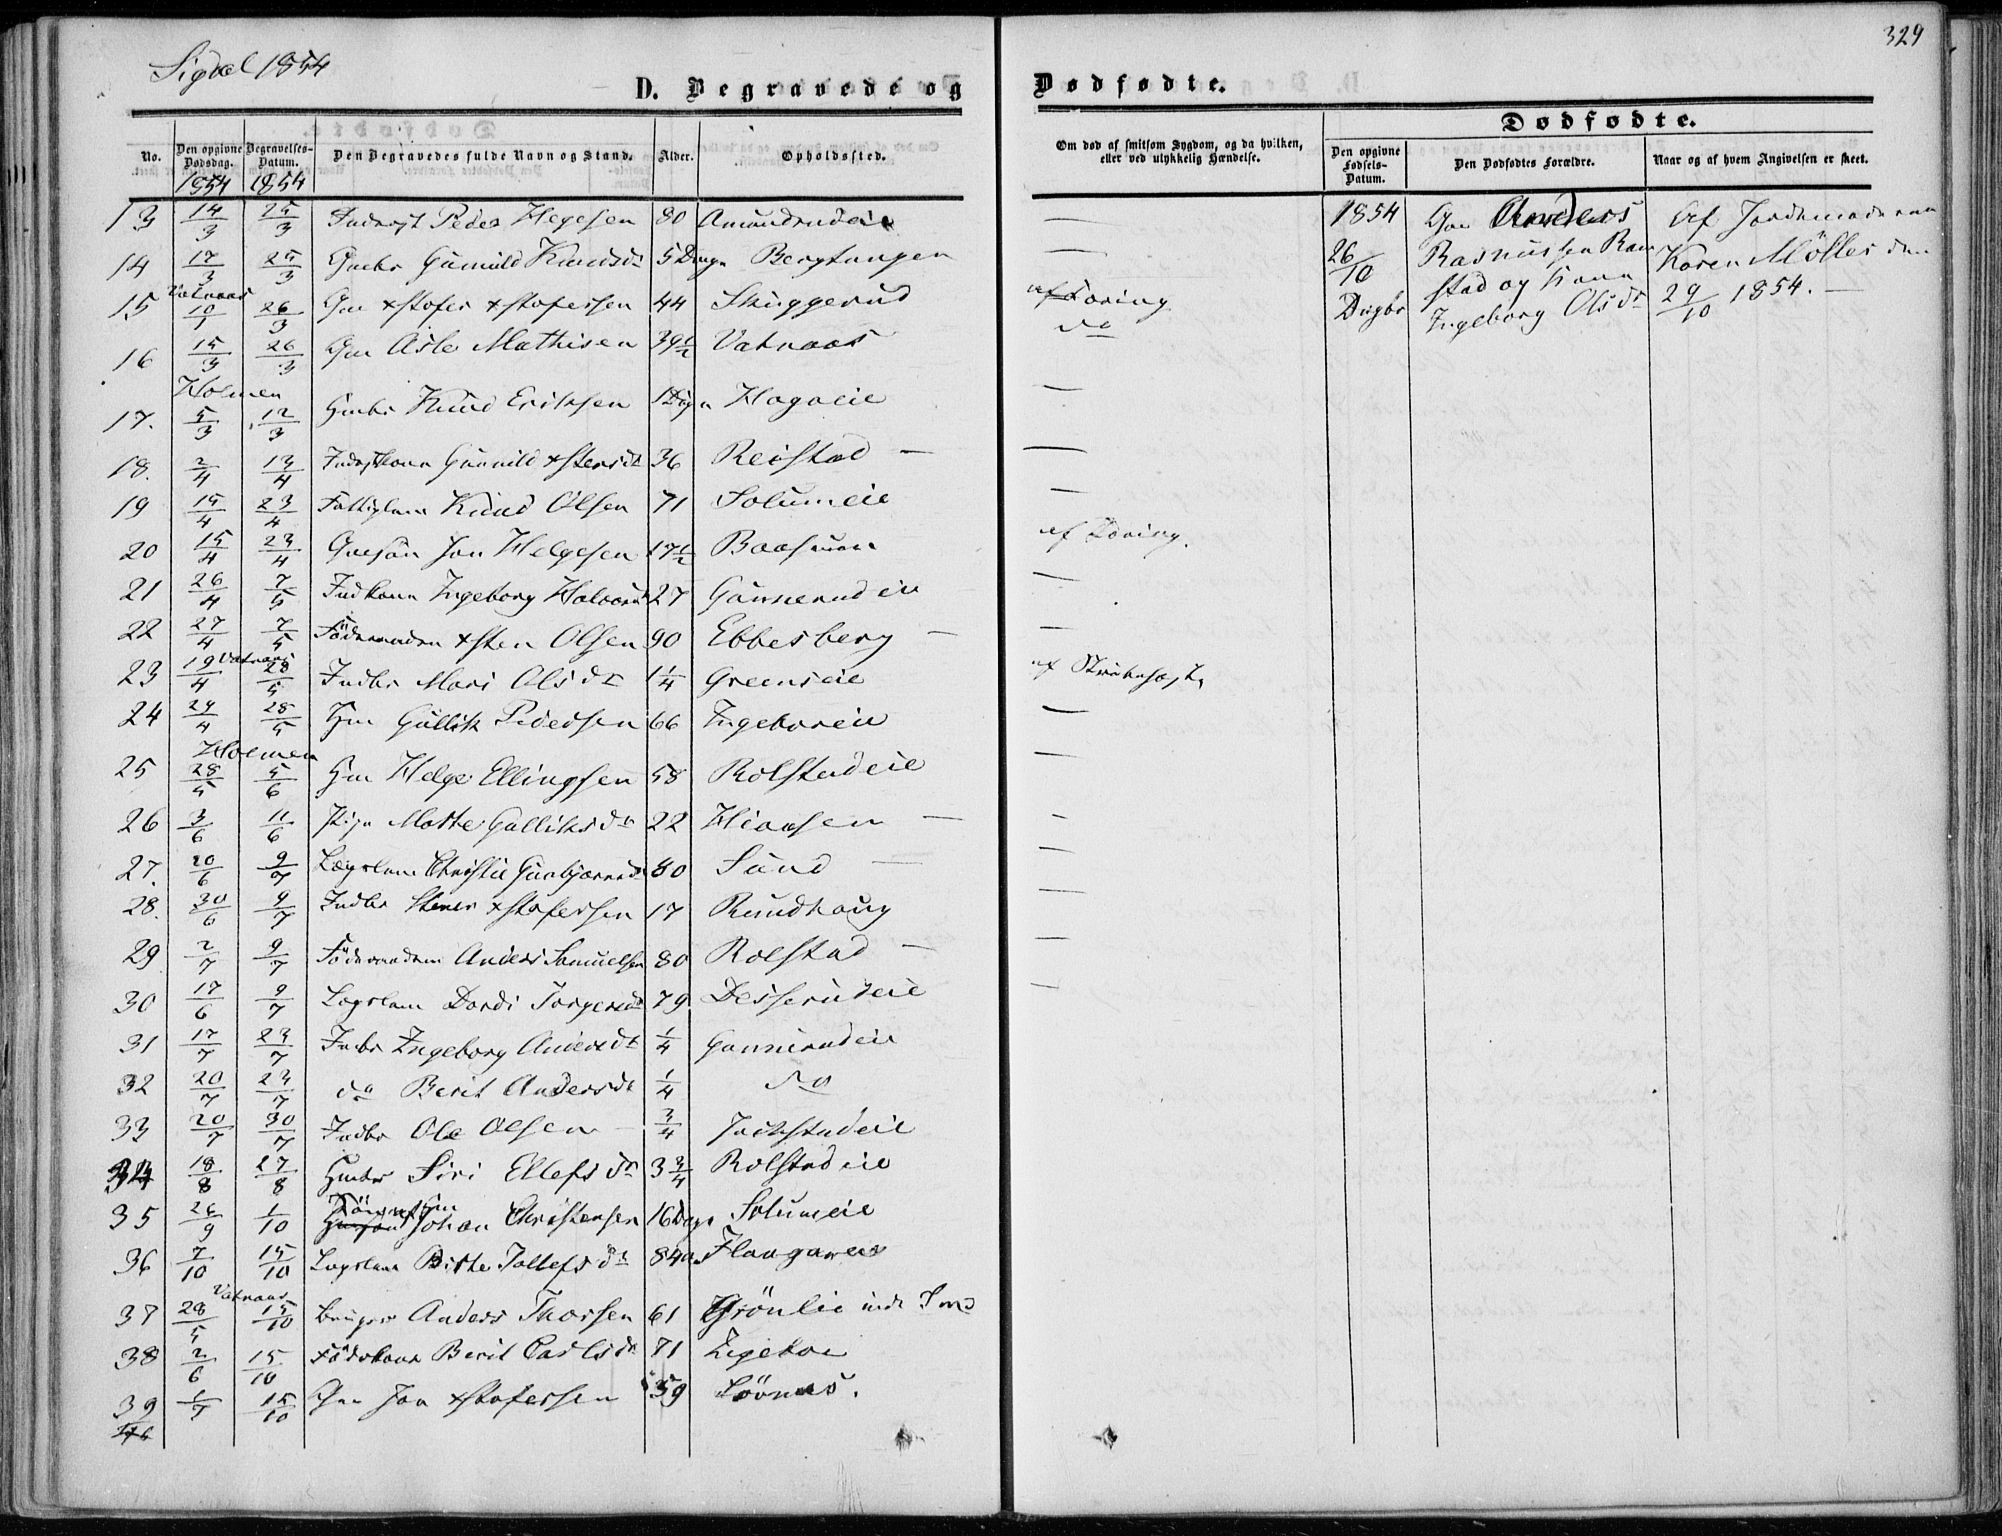 Sigdal 1854
329
D. Begravede og Dødfødte.
No. | Den opgivne Dødsdag. | Begravelses-Datum. | Den Begravedes fulde Navn og Stand. | Alder. | Opholdssted. | Om død af smitsom Sygdom, og da hvilken, eller ved ulykkelig Hændelse.
Dødfødte.
Den opgivne Fødsels-Datum. | Den Dødfødtes Forældre. | Naar og af hvem Angivelsen er skeet.
1854 1854
13 14/3 25/3 Peder Helgesen 80 Amundrudeie —
14 17/3 25/3 Gmbr Gunnild Knudsdt 5 Døgn Bergtangen —
Vatnaas
15 10/1 26/3 Gm xstofer xstofersen 44 Skuggerud af Tæring
16 15/3 26/3 Gm Asle Mathisen 39½ Vatnaas do
Holmen
17. 5/3 12/3 Hmbr Knud Eriksen 1 Døgn Hagaeie —
18. 2/4 13/4 Gunnild xstensdt 36 Reistad — —
19 15/4 23/4 Fattiglem Knud Olsen 71 Solumeie —
20 15/4 23/4 Gmsøn Jon Helgesen 17½ Baasmoen af Tæring.
21 26/4 7/5 Indkone Ingeborg Halvorsdt 27 Gunnerudeie —
22 27/4 7/5 xsten Olsen 90 Ebbesberg — —
Vatnaas
23 19/4 28/5 Indbr Mari Olsdt 1¼ Greenseie af Strubehoste
24 24/4 28/5 Hm Gullik Pedersen 66 Ingeboreie —
Holmen
25 28/5 5/6 Hm Helge Ellingsen 58 Rolstadeie —
26 3/6 11/6 Pige Mothe Gulliksdt 22 Hiaasen — —
27. 20/6 9/7 Lægslem Christie Gunbjørnsdt 80 Sund — —
28. 30/6 9/7 Indbr Stener xstofersen 17 Rundhaug —
29 2/7 9/7 Anders Samuelsen 80 Rolstad — —
30 17/6 9/7 Lægslem Dordi Torgersdt 79 Desserudeie —
31 17/7 23/7 Inbr Ingeborg Andersdt ¼ Gunnerudeie
32 20/7 23/7 do Berit Andersdt ¼ do
33 20/7 30/7 Indbr Ole Olsen — ¾ Jockstadeie
34 18/8 27/8 Hmbr Siri Ellefsdt 3¾ Rolstadeie
35 26/9 1/10 Johan Christensen 16 Dage Solumeie
36 7/10 15/10 Lægslem Birthe Tollefsdt 84
Vatnaas
37 28/5 15/10 Bruger Anders Thorsen 61 Grönlie
38 2/6 15/10 Föderkone Berit Carlsdt 71
39 15/10 Gm Jon xstofersen 59
1854 Gm Anders Af Jordemoderen
26/10 Rasmussen Karen Möller den
stad og Kone 29/10 1854. —
Ingeborg Olsdt